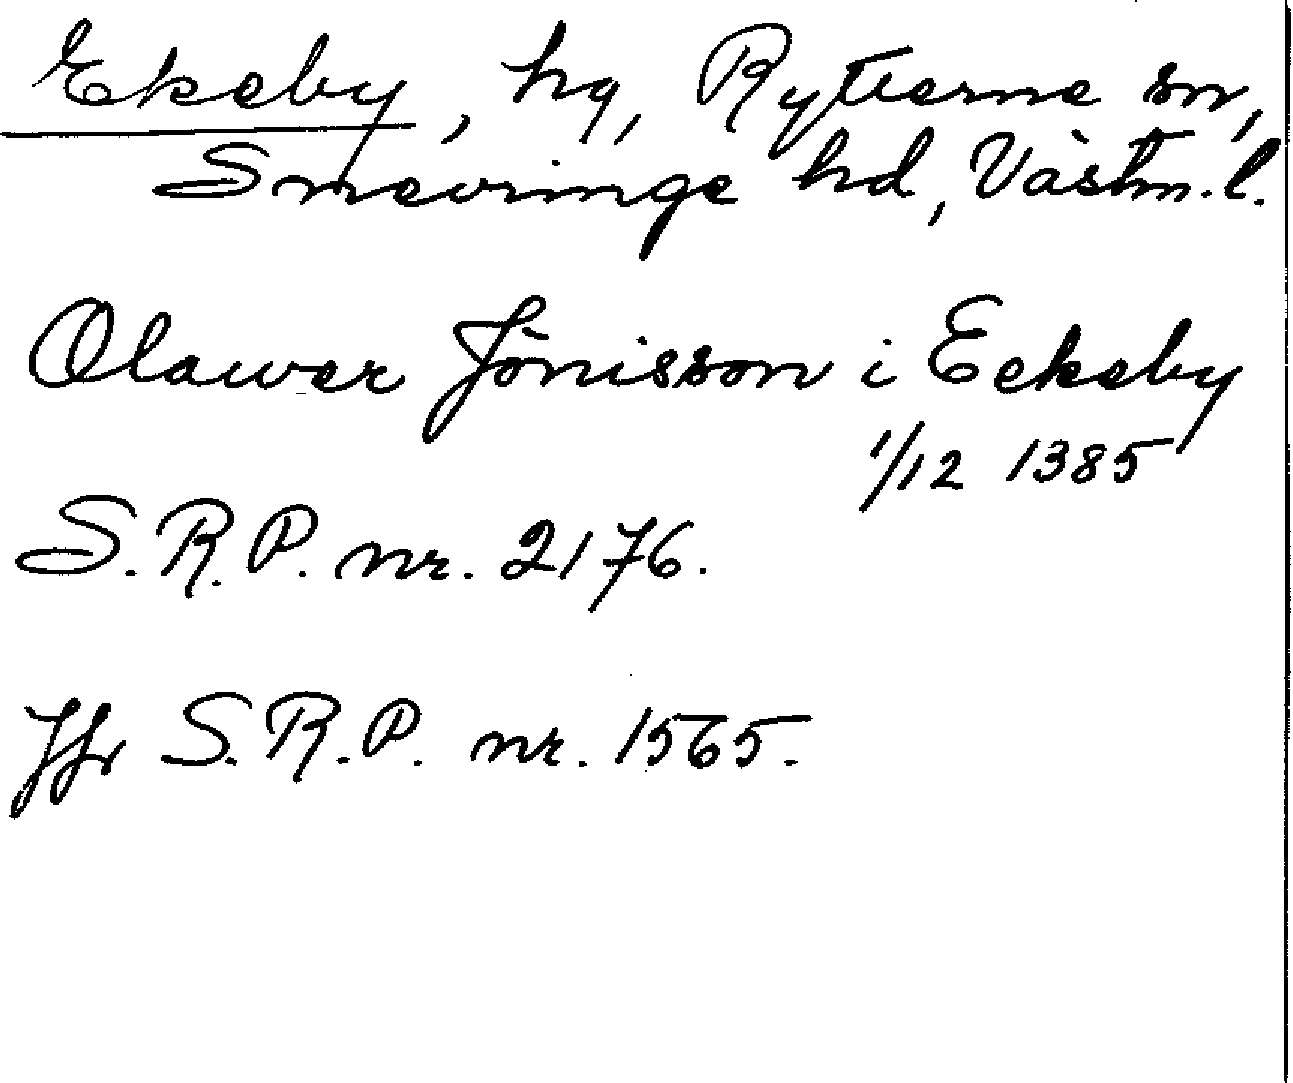 Ekeby, hg, Rytterne sn,
Snevringe hd, Västm.l.
Olawer Jönisson i Eckeby
1/12 1385
S.R.P. nr. 2176.
Jfr S.R.P. nr. 1565.